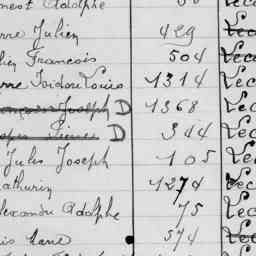 nest Adolphe
rre Julien 429 Lec
lien Francois 504 Lec
rre Isidore Louis 1314 Lec
Joseph D 1368 Lec
D 344 Lec
Jules Joseph 105 Lec
athurin 1274 Lec
lexandre Adolphe 75 Lec
is Marie 574 Lec